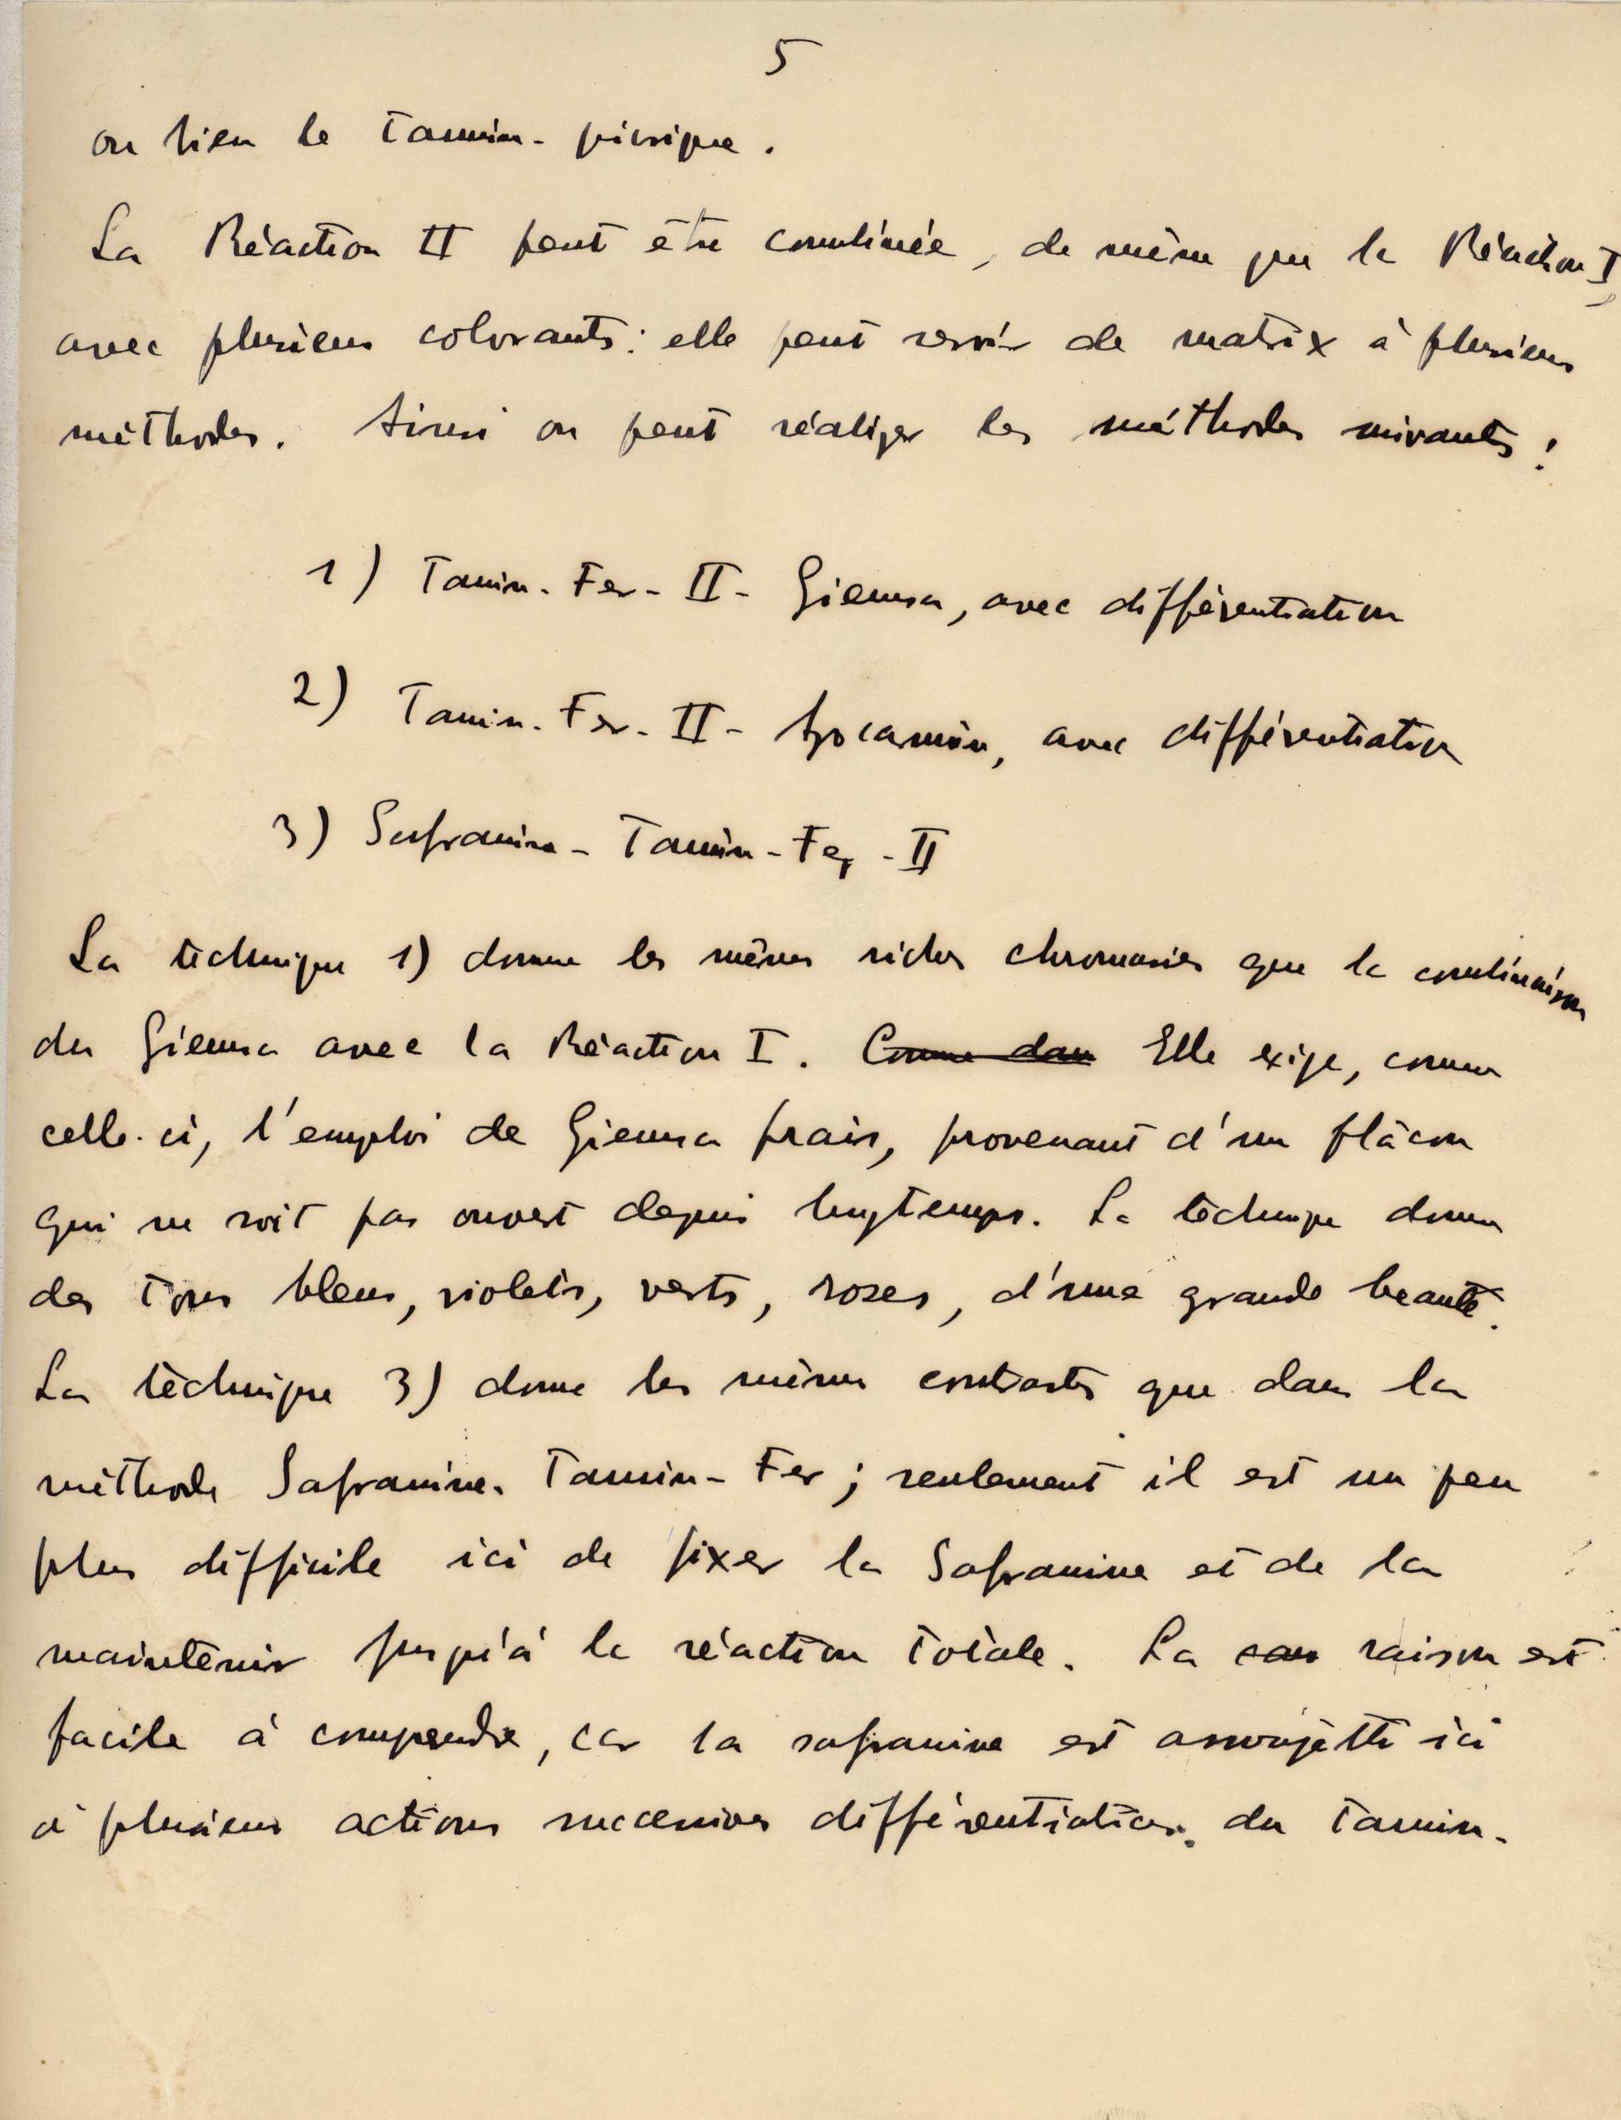 5
ou bien le Tannin-picrique.
La Réaction II peut être combinée, de même que la Réaction I,
avec plusieurs colorants: elle peut servir de matrix à plusieurs
méthodes. Ainsi on peut réaliser les méthodes suivants:
1) Tanin-Fer-II-Giemsa, avec différentiation
2) Tanin-Fer-II-Azocarmin, avec différentiation
3) Safranine-Tannin-Fer-II
La téchnique 1) donne les mêmes riches chromasies que la combinaison
du Giemsa avec la Réaction I. Comme dans Elle exige, comme
celle-ci, l'emploi de Giemsa frais, provenant d'un flâcon
qui ne soit pas ouvert depuis longtemps. La téchnique donne
des tons bleus, violets, verts, roses, d'une grande beauté.
La téchnique 3) donne les mêmes contrasts que dans la
méthode Safranine-Tannin-Fer; seulement il est un peu
plus difficile ici de fixer la Safranine et de la
maintenir jusqu'à la réaction totale. La raison est
facile à comprendre, car la safranine est assujetti ici
à plusieurs actions successives différentiatices du Tannin-